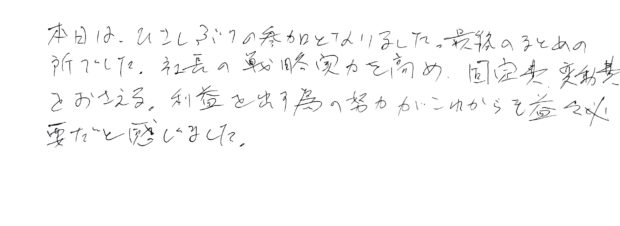 本日は、ひさしぶりの参加となりました。最後のまとめの
所でした。社長の戦略実力を高め、固定費、変動費
をおさえる。利益を出す為の努力がこれからも益々必
要だと感じました。